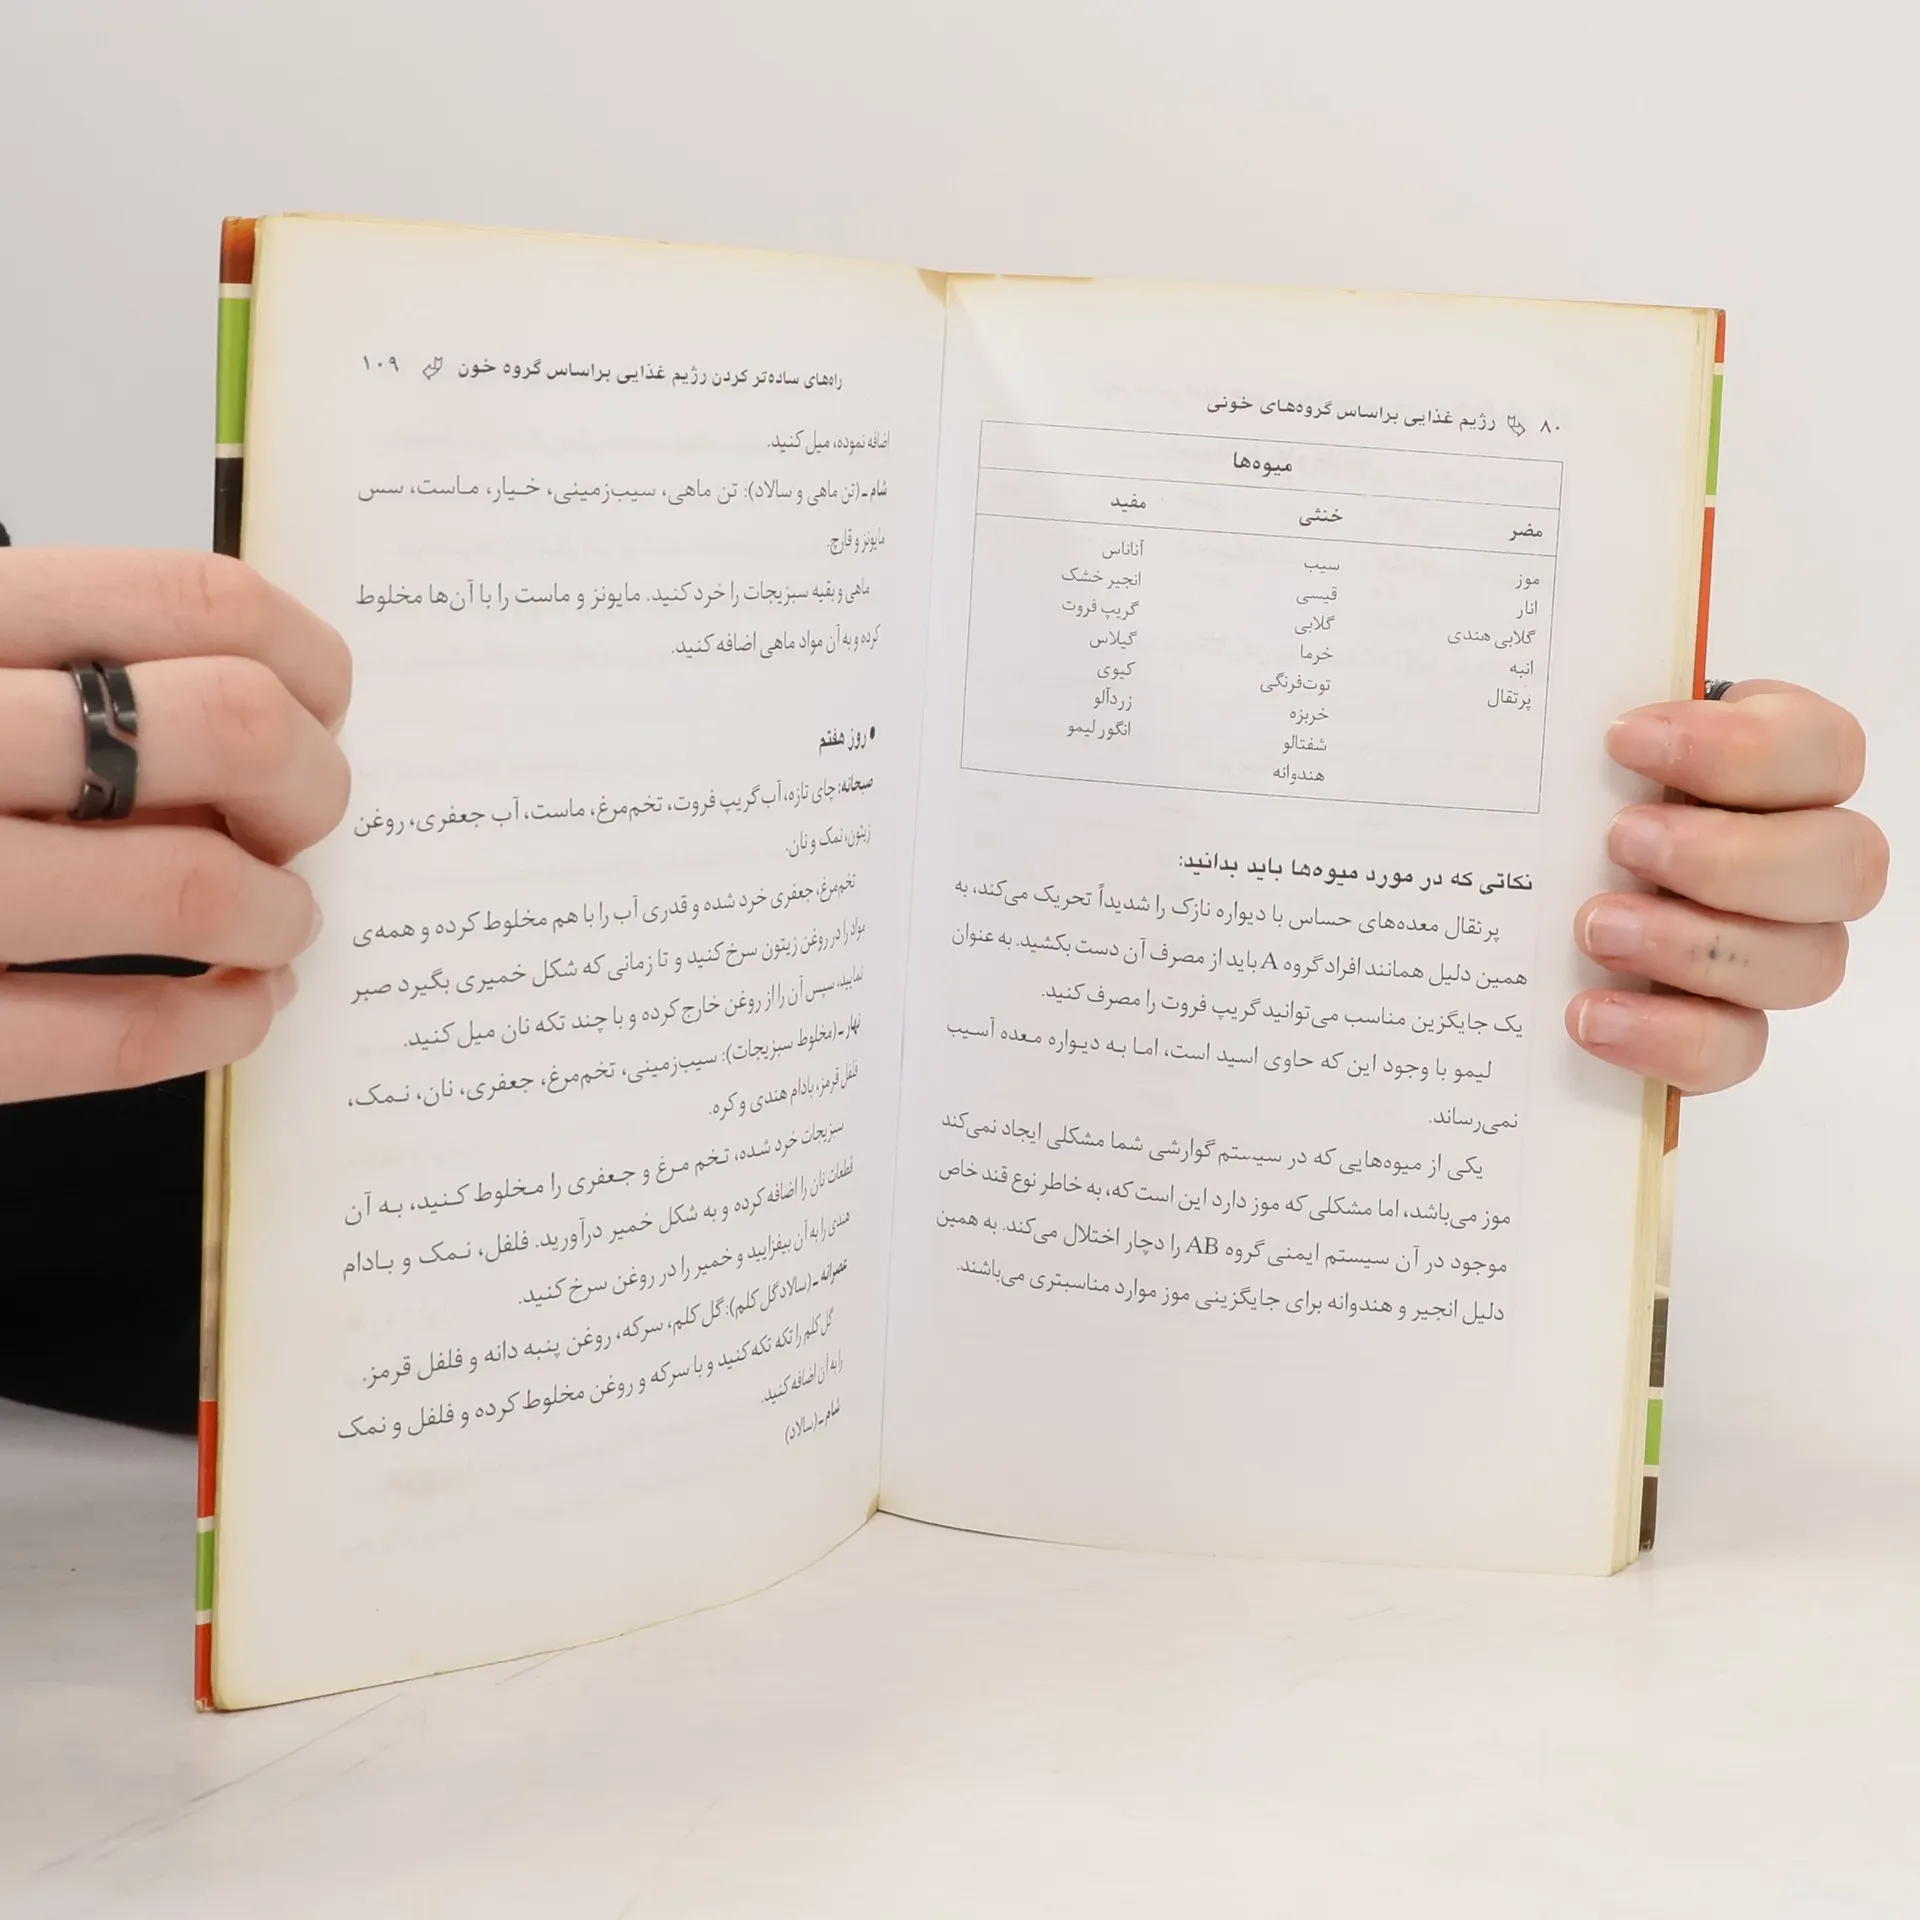 ۸۰ رژیم غذایی براساس گروه‌های خونی
میوه‌ها
مضر خنثی مفید
موز سیب آناناس
انار قیسی انجیر خشک
گلابی هندی گلابی گریپ فروت
انبه خرما گیلاس
پرتقال توت‌فرنگی کیوی
خربزه زردآلو
شفتالو انگور لیمو
هندوانه
نکاتی که در مورد میوه‌ها باید بدانید:
پرتقال معده‌های حساس با دیواره نازک را شدیداً تحریک می‌کند، به
همین دلیل همانند افراد گروه A باید از مصرف آن دست بکشید. به عنوان
یک جایگزین مناسب می‌توانید گریپ فروت را مصرف کنید.
لیمو با وجود این که حاوی اسید است، اما به دیواره معده آسیب
نمی‌رساند.
یکی از میوه‌هایی که در سیستم گوارشی شما مشکلی ایجاد نمی‌کند
موز می‌باشد، اما مشکلی که موز دارد این است که، به خاطر نوع قند خاص
موجود در آن سیستم ایمنی گروه AB را دچار اختلال می‌کند. به همین
دلیل انجیر و هندوانه برای جایگزینی موز موارد مناسبتری می‌باشند.
راه‌های ساده‌تر کردن رژیم غذایی براساس گروه خون ۱۰۹
اضافه نموده، میل کنید.
شام ـ (تن ماهی و سالاد): تن ماهی، سیب‌زمینی، خیار، ماست، سس
مایونز و قارچ.
ماهی و بقیه سبزیجات را خرد کنید. مایونز و ماست را با آن‌ها مخلوط
کرده و به آن مواد ماهی اضافه کنید.
• روز هفتم
صبحانه: چای تازه، آب گریپ فروت، تخم‌مرغ، ماست، آب جعفری، روغن
زیتون، نمک و نان.
تخم‌مرغ، جعفری خرد شده و قدری آب را با هم مخلوط کرده و همه‌ی
مواد را در روغن زیتون سرخ کنید و تا زمانی که شکل خمیری بگیرد صبر
نمایید، سپس آن را از روغن خارج کرده و با چند تکه نان میل کنید.
نهار ـ (مخلوط سبزیجات): سیب‌زمینی، تخم‌مرغ، جعفری، نان، نمک،
فلفل قرمز، بادام هندی و کره.
سبزیجات خرد شده، تخم مرغ و جعفری را مخلوط کنید، به آن
قطعات نان را اضافه کرده و به شکل خمیر درآورید. فلفل، نمک و بادام
هندی را به آن بیفزایید و خمیر را در روغن سرخ کنید.
عصرانه ـ (سالاد گل کلم): گل کلم، سرکه، روغن پنبه دانه و فلفل قرمز.
گل کلم را تکه تکه کنید و با سرکه و روغن مخلوط کرده و فلفل و نمک
را به آن اضافه کنید.
شام ـ (سالاد)